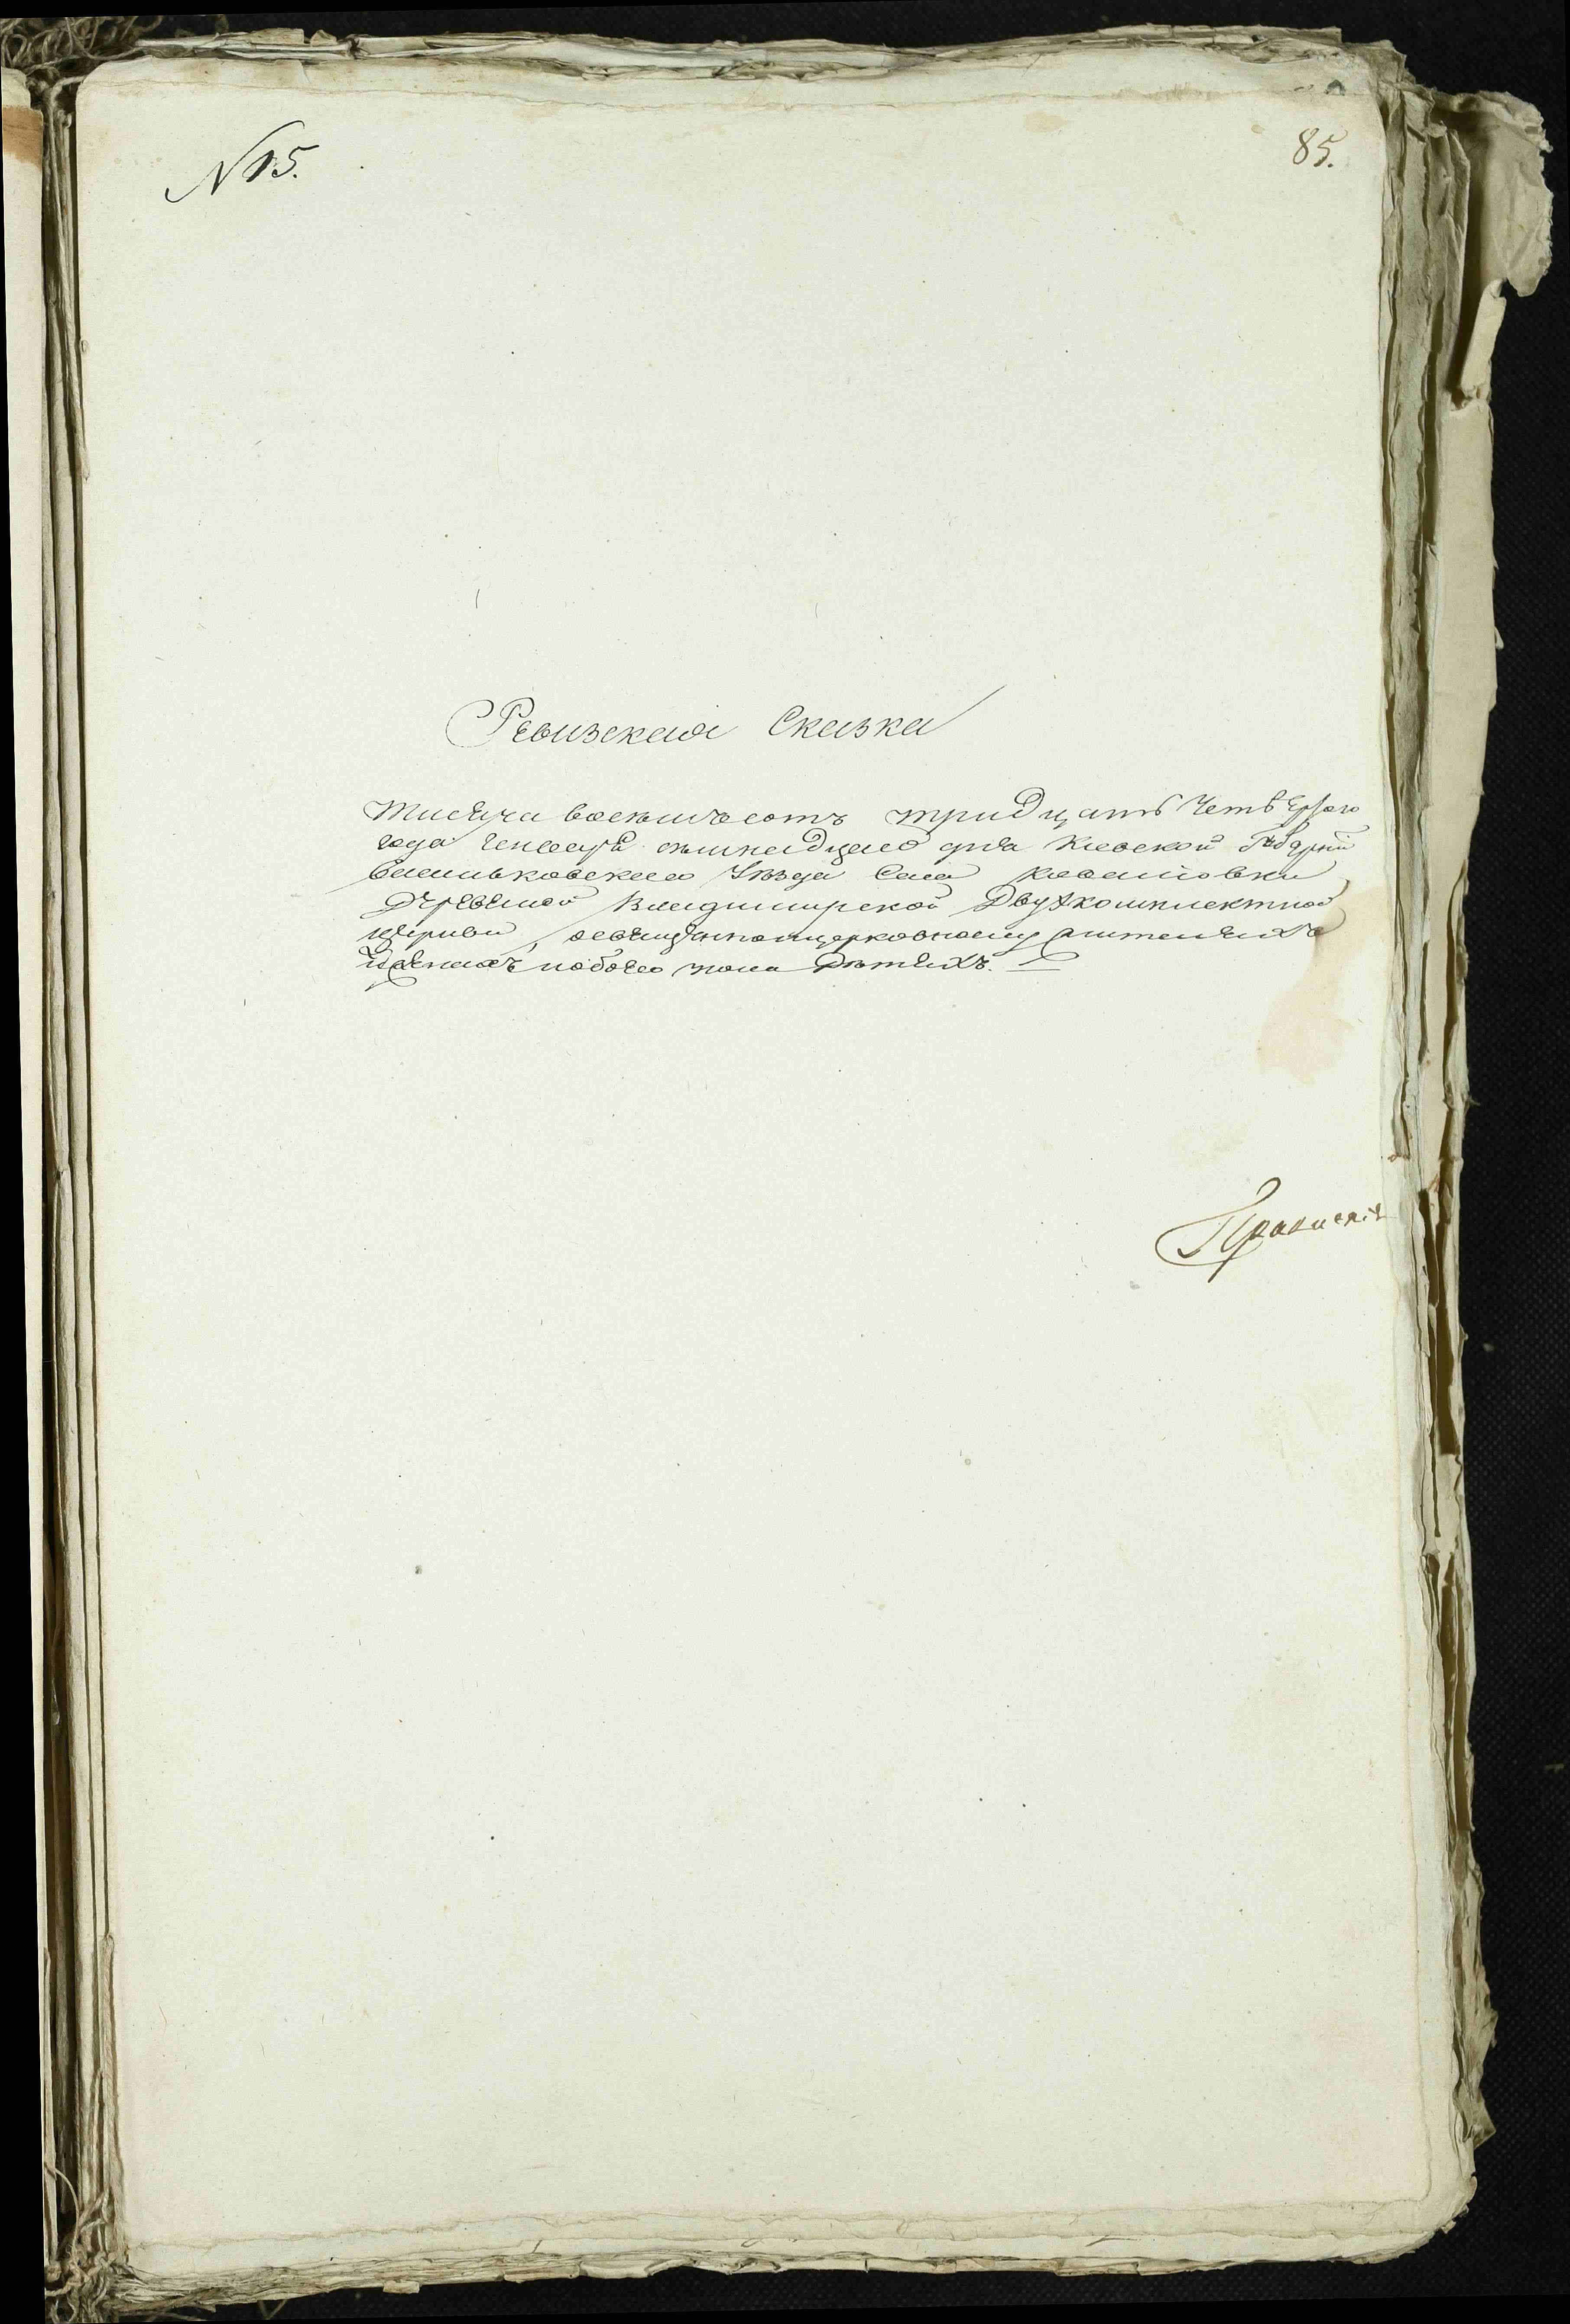 N 15.
85.
Ревизская Сказка
Тисяча восемъсотъ тридцатъ Четвертого
года Генваря дня Киевской Губернии
Василковского Уезда Села Ковалювки
Деревяной Владимирской Двухкомплектной
церкви, о священноцерковнослужителяхъ
и женахъ и обоего пола Детяхъ.